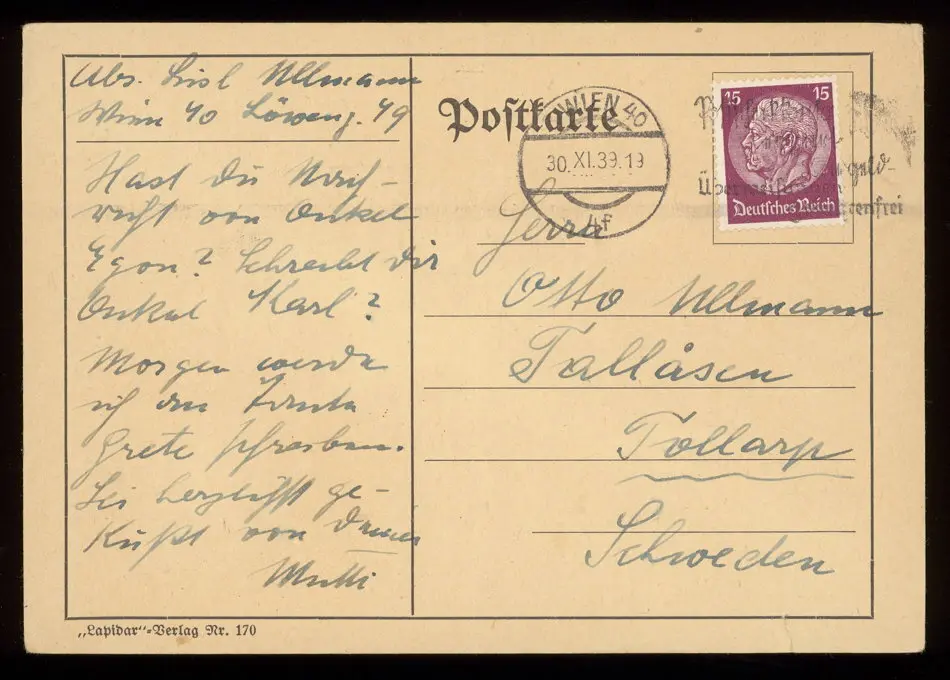 Abs. Lisl Ullmann
Wien 40 Löweng. 49
Hast du Nach-
richt von Onkel
Egon? Schreibt dir
Onkel Karl?
Morgen werde
ich an Tante
Grete schreiben.
Sei herzlichst ge-
küßt von deiner
Mutti
„Lapidar“-Verlag Nr. 170
Postkarte
WIEN 40
30.XI.39.19
4f
15 15
Deutsches Reich
Herrn
Otto Ullmann
Tallåsen
Tollarp
Schweden